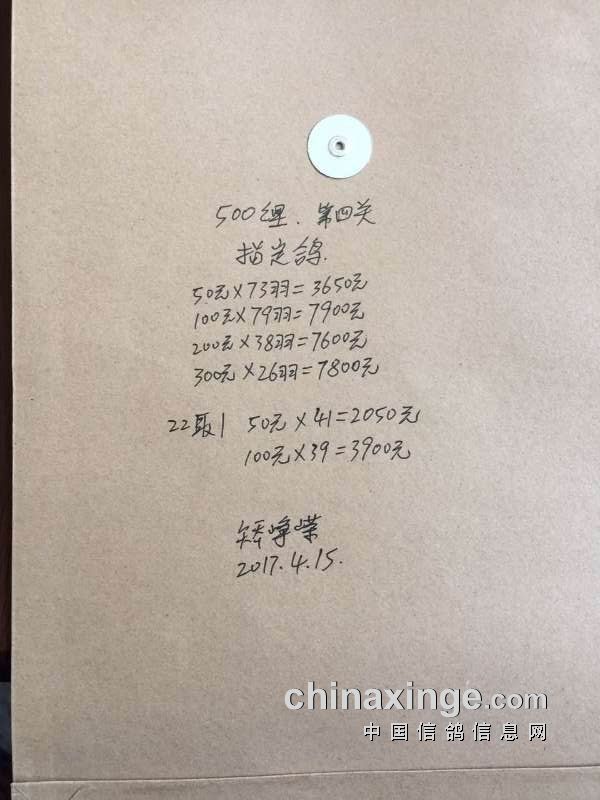 500经. 第四关
指定鸽.
50元×73羽=3650元
100元×79羽=7900元
200元×38羽=7600元
300元×26羽=7800元
22取1 50元×41=2050元
100元×39=3900元
峥嵘
2017.4.15.
chinaxinge.com
中国信鸽信息网